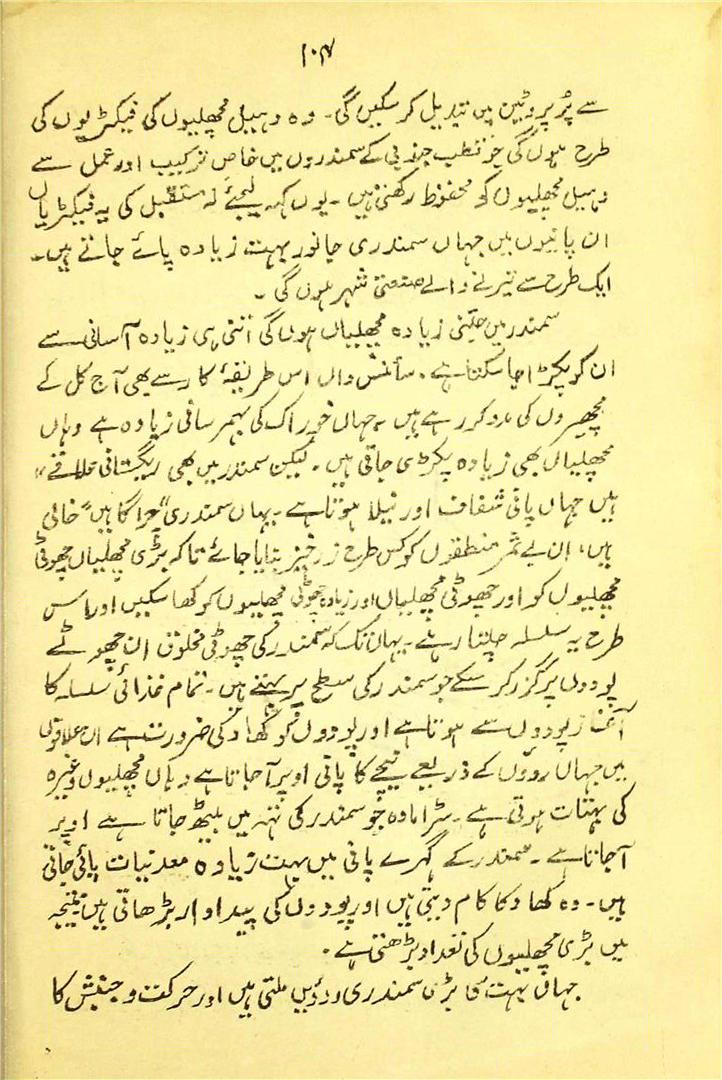 ۱۰۴
سے پُر پروٹین میں تبدیل کر سکیں گی۔ وہ وہیل مچھلیوں کی فیکٹریوں کی
طرح ہوں گی جو قطب جنوبی کے سمندروں میں خاص ترکیب اور عمل سے
وہیل مچھلیوں کو محفوظ رکھتی ہیں۔ یوں کہہ لیجئے کہ مستقبل کی یہ فیکٹریاں
ان پانیوں میں جہاں سمندری جانور بہت زیادہ پائے جاتے ہیں۔
ایک طرح سے تیرنے والے صنعتی شہر ہوں گی۔
سمندر میں جتنی زیادہ مچھلیاں ہوں گی اتنی ہی زیادہ آسانی سے
ان کو پکڑا جا سکتا ہے۔ سائنس داں اس طریقۂ کار سے بھی آج کل کے
مچھیروں کی مدد کر رہے ہیں۔ جہاں خوراک کی بہمرسانی زیادہ ہے وہاں
مچھلیاں بھی زیادہ پکڑی جاتی ہیں۔ لیکن سمندر میں بھی ریگستانی علاقے"
ہیں جہاں پانی شفاف اور نیلا ہوتا ہے۔ یہاں سمندری "چراگاہیں" خالی
ہیں، ان بے ثمر منطقوں کو کس طرح زرخیز بنایا جائے تاکہ بڑی مچھلیاں چھوٹی
مچھلیوں کو اور چھوٹی مچھلیاں اور زیادہ چھوٹی مچھلیوں کو کھا سکیں اور اس
طرح یہ سلسلہ چلتا رہے۔ یہاں تک کہ سمندر کی چھوٹی مخلوق ان چھوٹے
پودوں پر گزر کر سکے جو سمندر کی سطح پر بہتے ہیں۔ تمام غذائی سلسلہ کا
آغاز پودوں سے ہوتا ہے اور پودوں کو کھاد کی ضرورت ہے ان علاقوں
میں جہاں روؤں کے ذریعے نیچے کا پانی اوپر آ جاتا ہے وہاں مچھلیوں وغیرہ
کی بہتات ہوتی ہے۔ سڑا مادہ جو سمندر کی تہہ میں بیٹھ جاتا ہے اوپر
آ جاتا ہے۔ سمندر کے گہرے پانی میں بہت زیادہ معدنیات پائی جاتی
ہیں۔ وہ کھاد کا کام دیتی ہیں اور پودوں کی پیداوار بڑھاتی ہیں نتیجہ
میں بڑی مچھلیوں کی تعداد بڑھتی ہے۔
جہاں بہت سی بڑی سمندری روئیں ملتی ہیں اور حرکت و جنبش کا